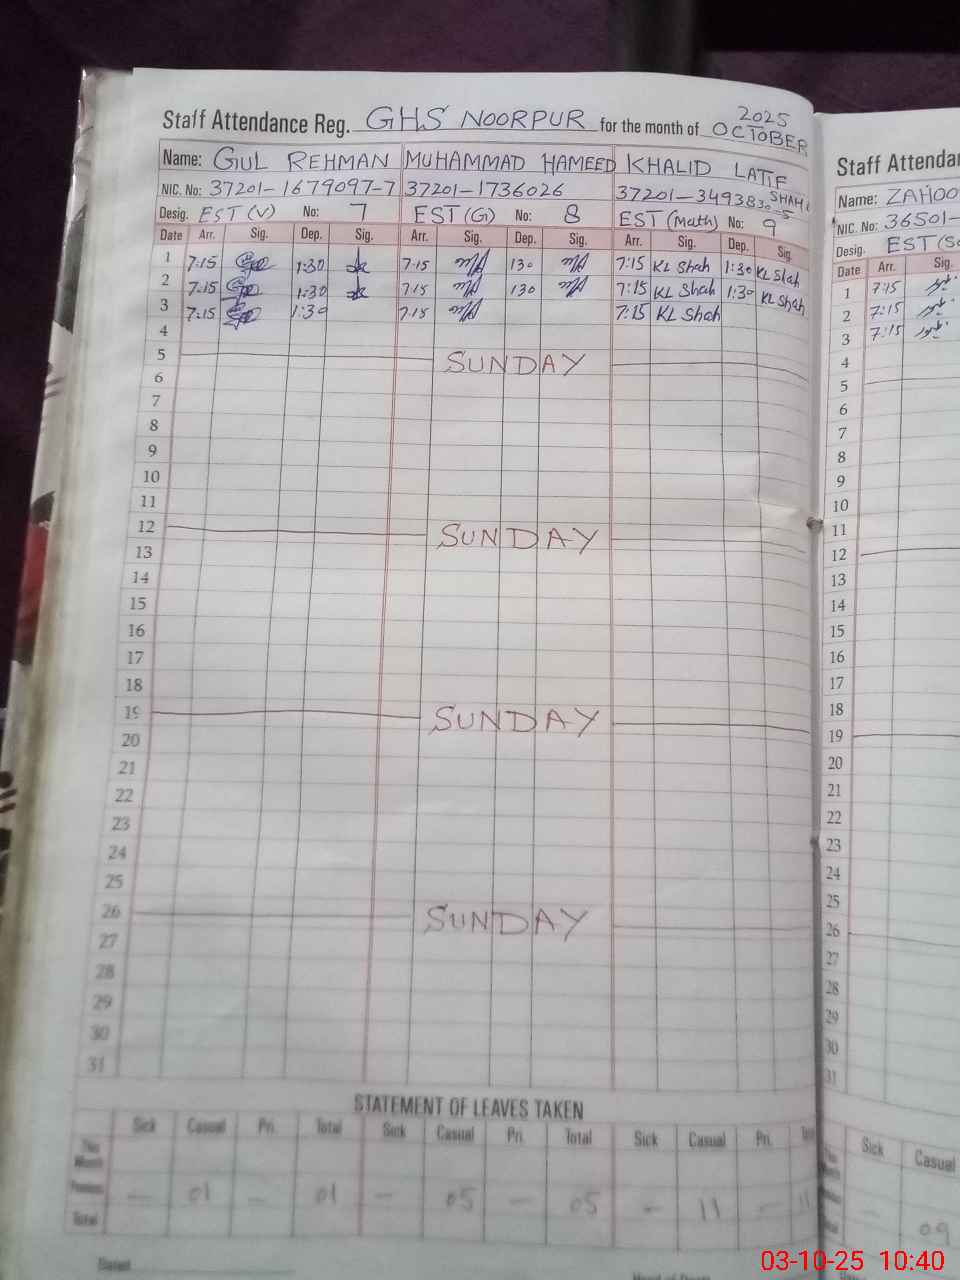 Staff Attendance Reg. GHS NOORPUR for the month of OCTOBER 2025
Name: GUL REHMAN MUHAMMAD HAMEED KHALID LATIF SHAH
NIC. No: 37201-1679097-7 37201-1736026 37201-3493830-5
Desig. EST (V) No: 7 EST (G) No: 8 EST (Math) No: 9
Date Arr. Sig. Dep. Sig. Arr. Sig. Dep. Sig. Arr. Sig. Dep. Sig.
1 7:15 1:30 7:15 130 7:15 KL Shah 1:30 KL Shah
2 7:15 1:30 7:15 130 7:15 KL Shah 1:30 KL Shah
3 7:15 1:30 7:15 7:15 KL Shah
4
5 SUNDAY
6
7
8
9
10
11
12 SUNDAY
13
14
15
16
17
18
19 SUNDAY
20
21
22
23
24
25
26 SUNDAY
27
28
29
30
31
STATEMENT OF LEAVES TAKEN
Sick Casual Pri. Total Sick Casual Pri. Total Sick Casual Pri. Total
This Month
Previous — 01 — 01 — 05 — 05 — 11 — 11
Total
Staff Attenda
Name: ZAHOO
NIC. No: 36501-
Desig. EST (Sc
Date Arr. Sig.
1 7:15
2 7:15
3 7:15
4
5
6
7
8
9
10
11
12
13
14
15
16
17
18
19
20
21
22
23
24
25
26
27
28
29
30
31
Sick Casual
— 09
03-10-25 10:40